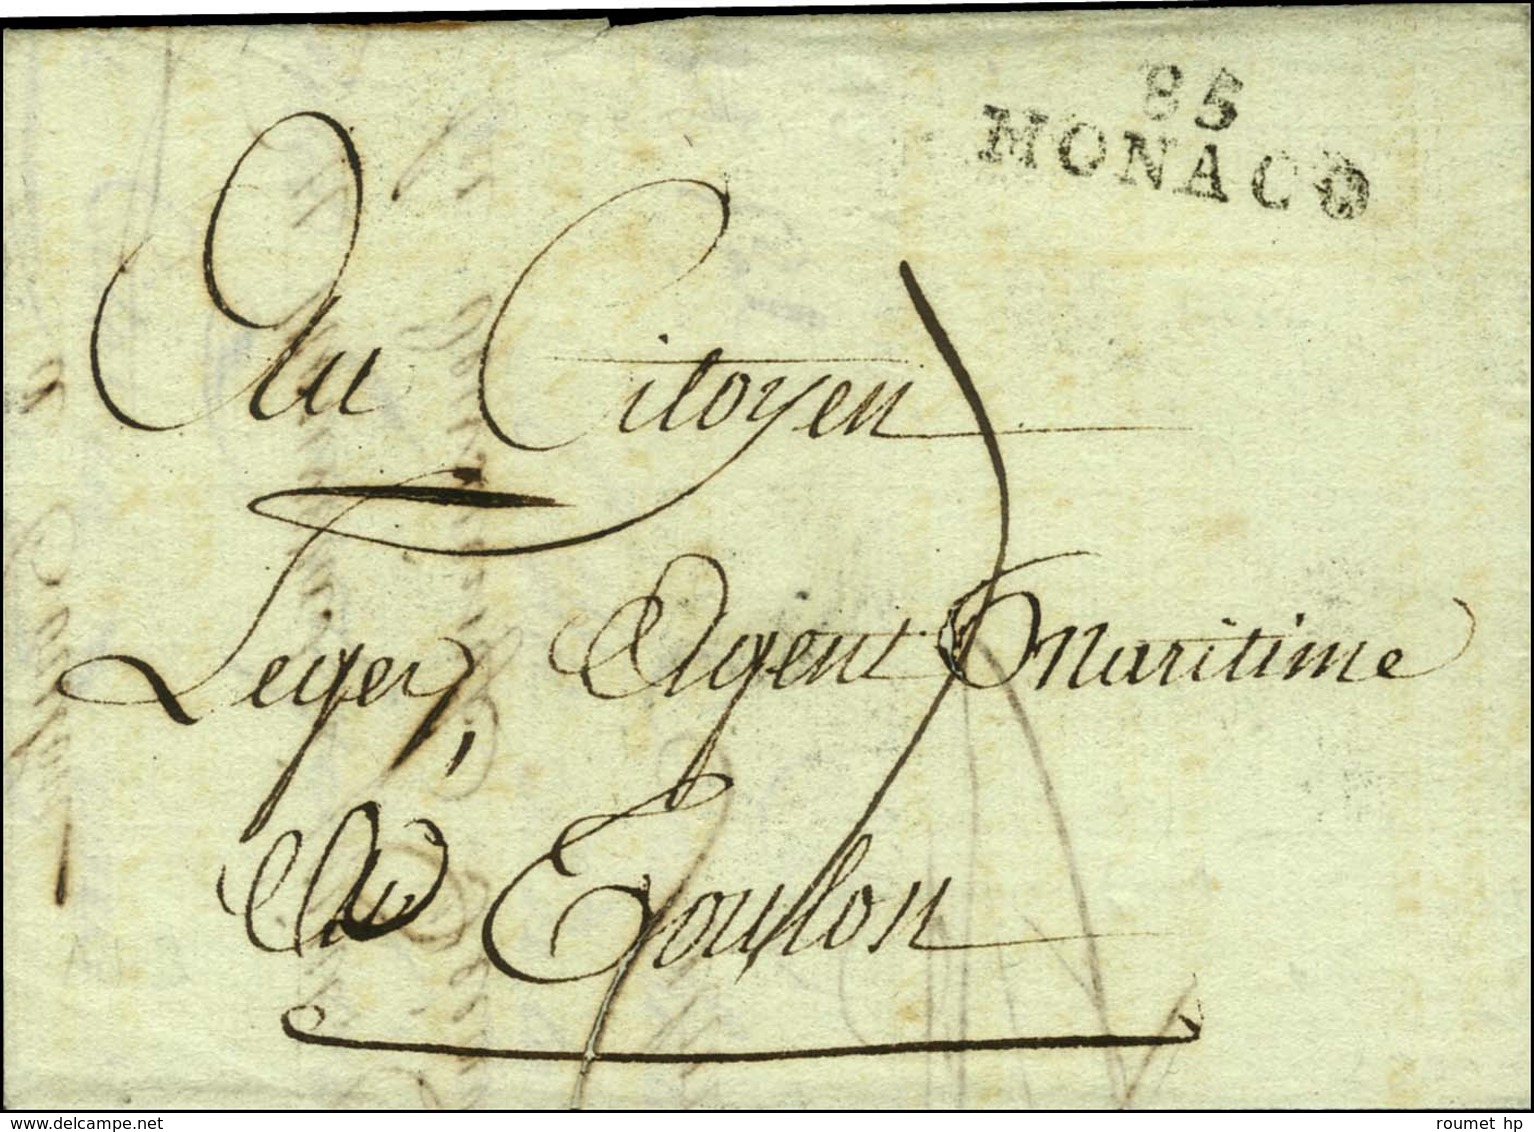 85
MONACO
Au Citoyen
Leger, Agent Maritime
Au Toulon
www.delcampe.net
roumet hp